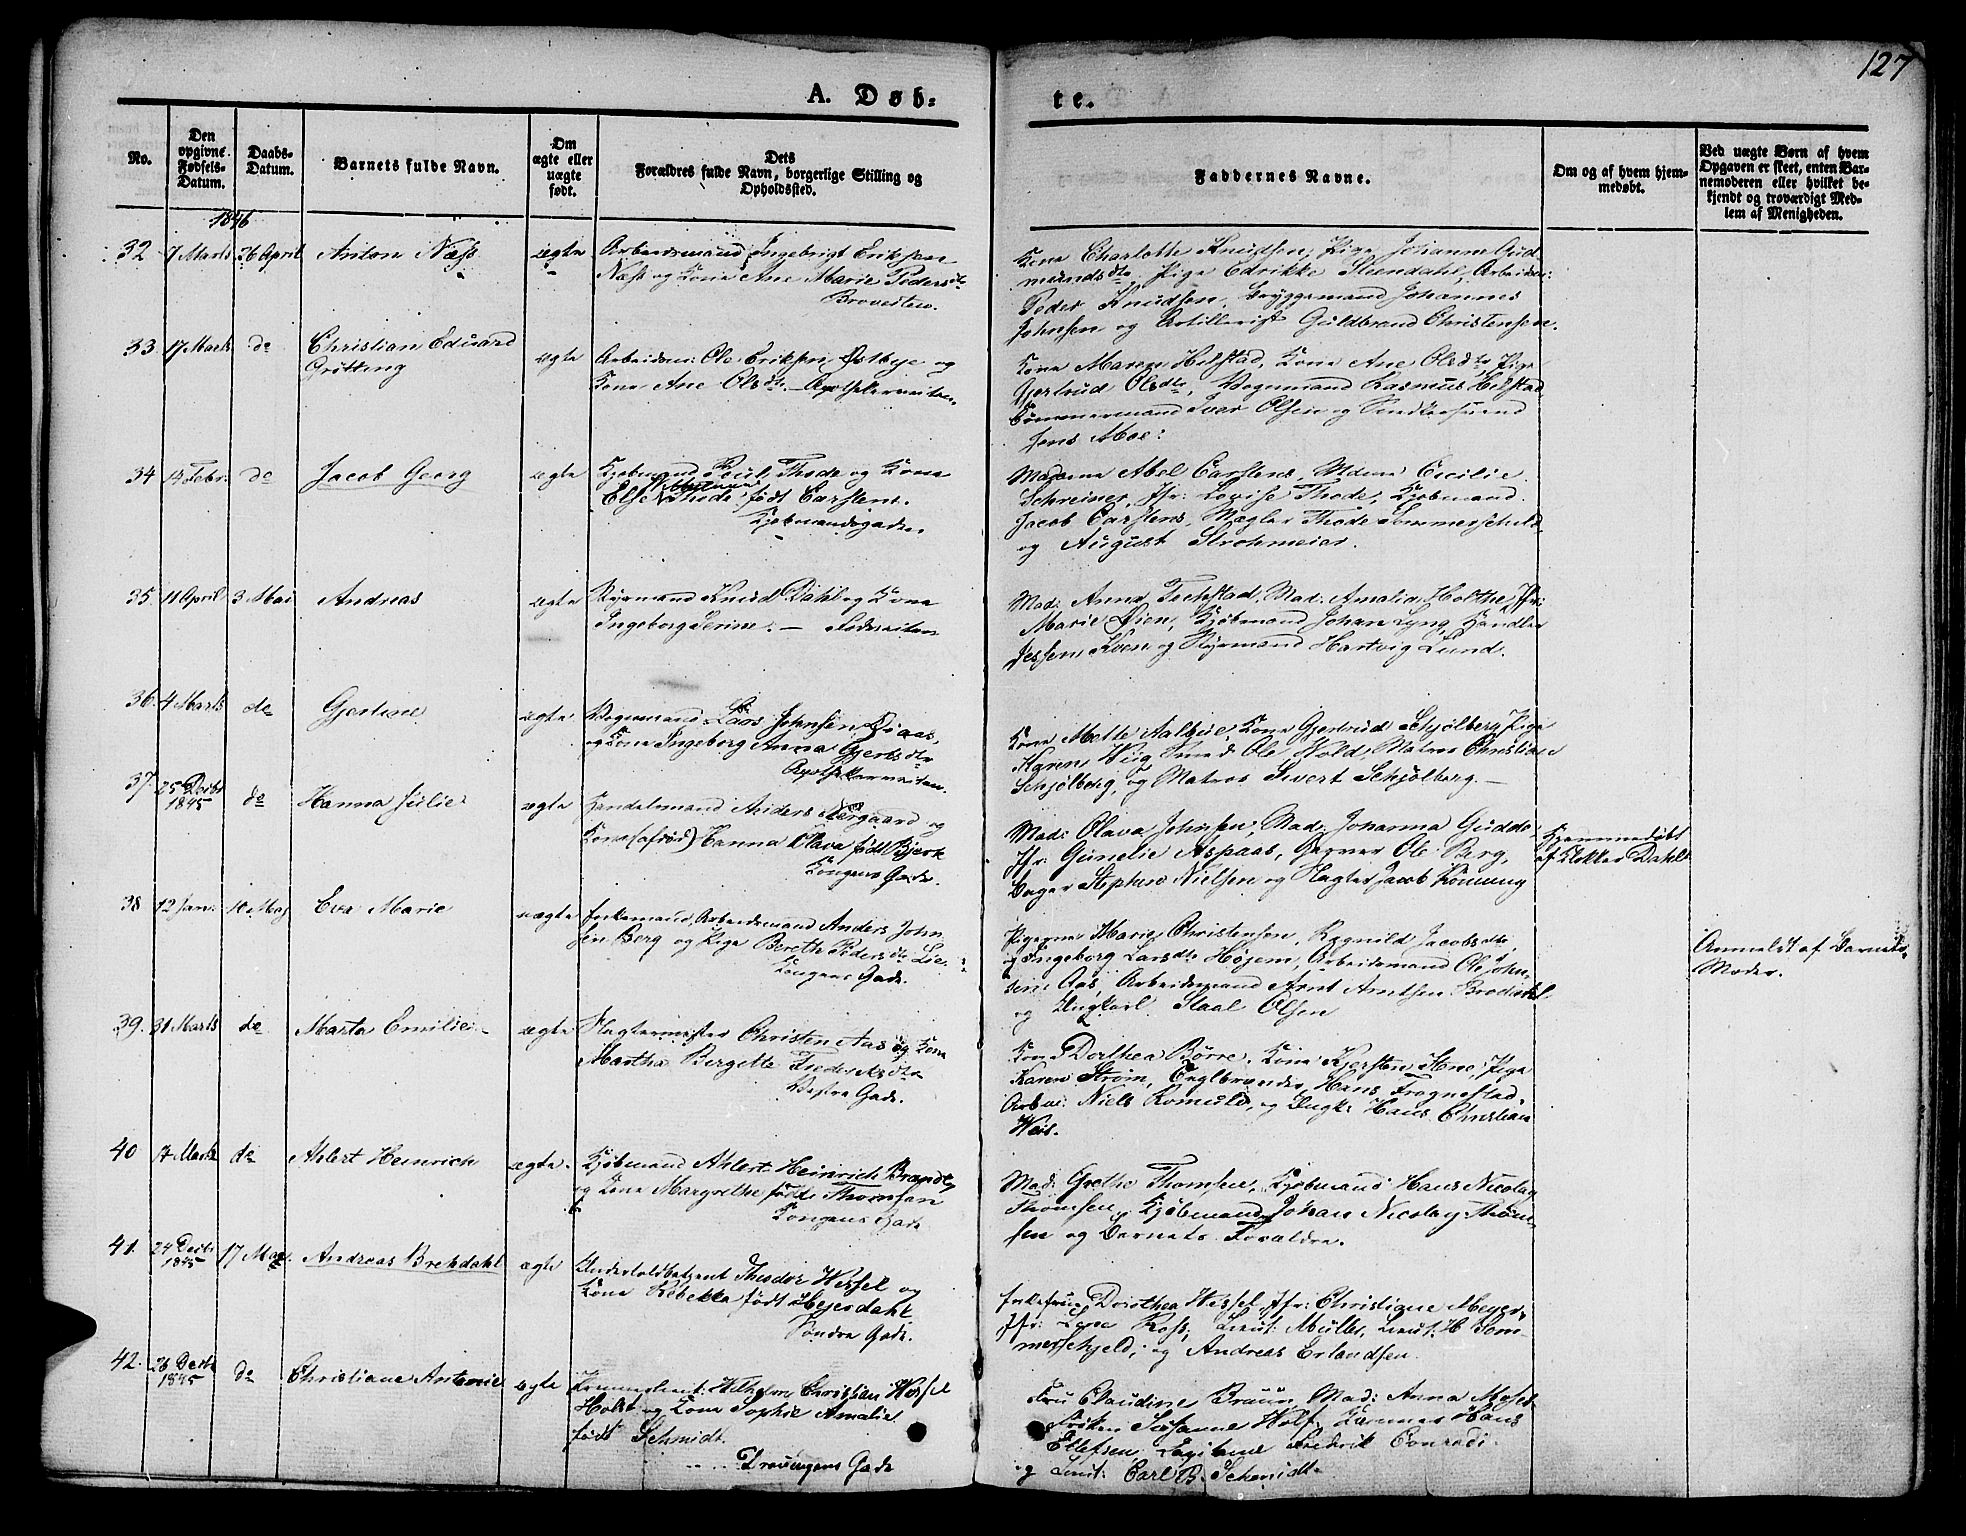 127
A. Døb-
te.
No.
Den opgivne Fødsels-Datum.
Daabs-Datum.
Barnets fulde Navn.
Om ægte eller uægte født.
Dets Forældres fulde Navn, borgerlige Stilling og Opholdssted.
Faddernes Navne.
Om og af hvem hjem-medøbt.
Ved uægte Børn af hvem Opgaven er skeet, enten Bar-nemoderen eller hvilket be-kjendt og troværdigt Med-lem af Menigheden.
1846
32 7 Marts 26 April Anton Næss ægte Arbeidsmand Ingebrigt Eriksen
Næss og Kone Ane Marie Pedersdtr
Brovesten.
Kone Charlotte Knudsen, Pige Johanne Gud
mundsdtr Pige Edrikke Steendahl, Arbeidsm:
Peder Knudsen, Bryggemand Johannes
Johnsen og Artillerist Guldbrand Christensen.
33 17 Marts do Christian Eduard
Grötting
ægte Arbeidsm: Ole Eriksen Østbye og
Kone Ane Olsdtr – Apothekerveiten.
Kone Maren Helstad, Kone Ane Olsdtr, Pige
Gjertrud Olsdtr, Vognmand Rasmus Helstad
Tømmermand Iver Olsen og Snedkersvend
Jens Moe:
34 14 Febr: do Jacob Georg ægte Kjøbmand Poul Thode og Kone
Else Thode født Carstens.
Kjøbmandsgaden.
Madame Abel Carstens, Mdme Cecilie
Schreiner, Jfr: Lovise Thode, Kjøbmand
Jacob Carstens, Mægler Thode Sommerschield
og August Strohmeier.
35 11 April 3 Mai Andreas ægte Styrmand Knud Dahl og Kone
Ingeborg Serine. –
Mad: Anna Techstad, Mad: Amalia Holthe, Jfr:
Marie Øien, Kjøbmand Johan Lyng, Handler
Jessen Kven og Styrmand Hartvig Lund.
36. 4 Marts do Gjertine ægte Vognmand Lars Johnsen Digaas,
og Kone Ingeborg Anna Gjertsdtr
Apothekerveiten.
Kone Mette Aalbue, Kone Gjertrud Schjølberg, Pige
Karen Wiig Smed Ole Wold, Matros Christian
Schjølberg, og Matros Sivert Schjølberg. –
37. 25 Decbr 1845 do Hanna Julie ægte Handelsmand Anders Nergaard og
Kone (afdød) Hanna Olava født Bjerk
Kongens Gade.
Mad: Olava Johnsen, Mad: Johanna Guddo
Jfr: Gunelie Aspaas, Garver Ole Berg,
Bager Stephen Nielsen og Slagter Jacob Könning
Hjemmedøbt
af Klokker Dahl.
38 12 Jan: 10 May Eva Marie uægte Enkemand, Arbeidsmand Anders John
sen Berg og Pige Berethe Pedersdtr Lie
Kongens Gade.
Pigerne Marie Christensen, Ragnild Jacobsdtr,
og Ingeborg Larsdtr Højem, Arbeidsmand Ole John
sen Aas, Arbeidsmand Arnt Arntsen Brodahl
og Ungkarl Staal Olsen
Anmeldt af Barnets
Moder.
39. 31 Marts do Marta Emilie ægte Slagtermester Christen Aas og Kone
Martha Bergitte Frederiksdtr
Vestre Gade.
Kone Dorthea Börre, Kone Kjersten Stene, Pige
Karen Strøm, Hans Frognestad,
Arbm: Niels Romuld, og Ungk: Hans Christian
Weis.
40 17 Marts do Ahlert Heinrich ægte. Kjøbmand Ahlert Heinrich Brandt,
og Kone Margrethe født Thomsen
Kongens Gade
Mad: Grethe Thomsen, Kjøbmand Hans Nicolay
Thomsen, Kjøbmand Johan Nicolay Thom-
sen og Barnets Forældre.
41. 24 Decbr 1845 17 May. Andreas Brekdahl ægte Underfoldbetjent Theodor Wessel og
Kone Rebekka født Hejerdahl
Søndre Gade.
Enkefrue Dorothea Wessel, Jfr: Christiane Meyer,
Jfr: Lene Ross, Lieut: Müller, Lieut: H Som
merschjeld, og Andreas Erlandsen.
42. 26 Decbr 1845 do Christiane Antonie ægte Premierlieut: Wilhelm Christian Wessel
Holst og Kone Sophie Amalie
født Schmidt.
Dronningens Gade
Fru Claudine Bruun, Mad: Anna Moses
Frøken Susanne Wolf, Hans
Ellefsen, Capitaine Fredrik Conradi
og Lieut: Carl B. Schmidt.